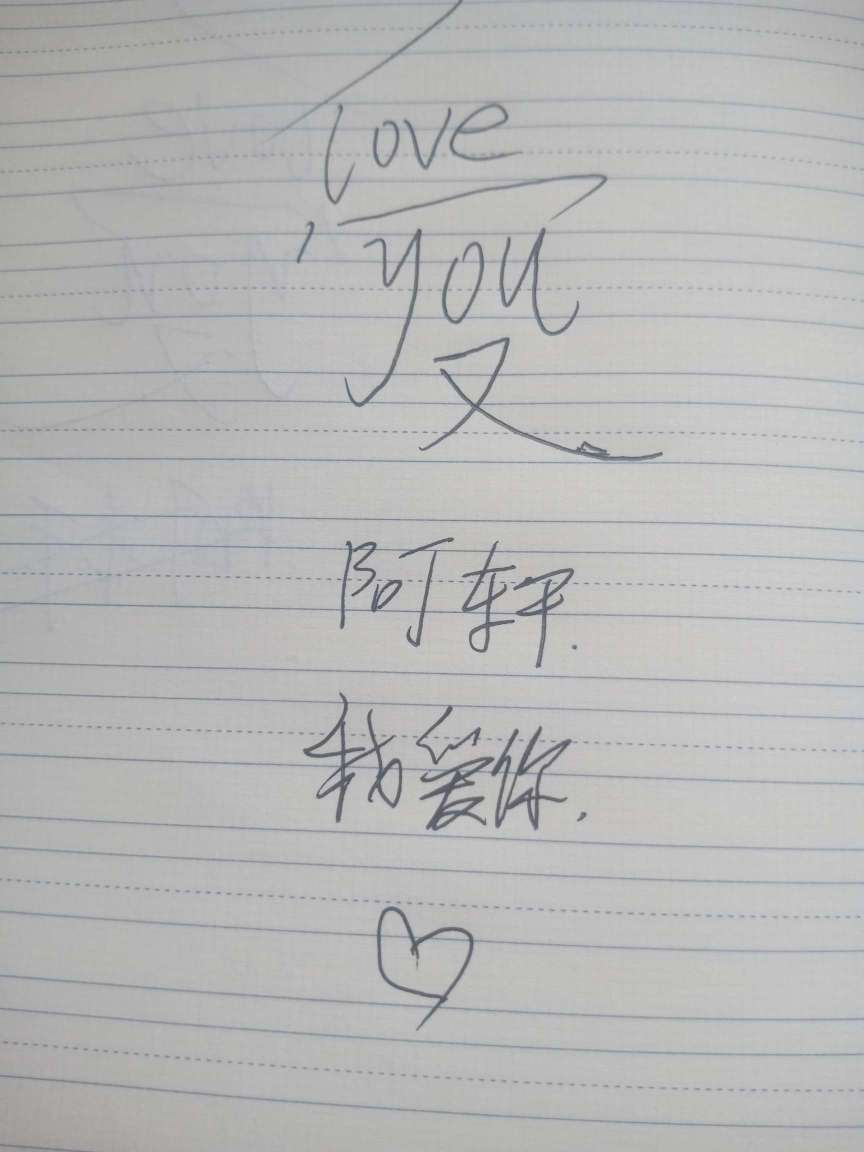 love
you
又
阿轩.
我爱你.